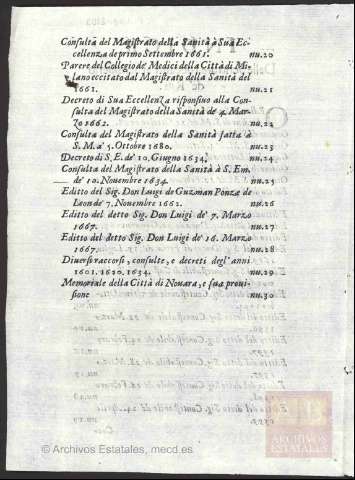 Consulta del Magistrato della Sanità à Sua Ec-
cellenza de primo Settembre 1661. nu.20
Parere del Collegio de' Medici della Città di Mi-
lano eccitato dal Magistrato della Sanità del
1661. nu.21
Decreto di Sua Eccellenza risponsiuo alla Con-
sulta del Magistrato della Sanità de' 4. Mar-
zo 1662. nu.22
Consulta del Magistrato della Sanità fatta à
S. M. a' 5. Ottobre 1680. nu.23
Decreto di S. E. de' 10. Giugno 1634, nu.24
Consulta del Magistrato della Sanità à S. Em.
de' 10. Nouembre 1634. nu.25
Editto del Sig. Don Luigi de Guzman Ponze de
Leon de' 7. Nouembre 1662. nu.26
Editto del detto Sig. Don Luigi de' 7. Marzo
1667. nu.27
Editto del detto Sig. Don Luigi de' 16. Marzo
1667. nu.28
Diuersi raccorsi, consulte, e decreti degl'anni
1601. 1620. 1634. nu.29
Memoriale della Città di Nouara, e sua proui-
sione nu.30
ARCHIVOS
ESTATALES
© Archivos Estatales, mecd.es